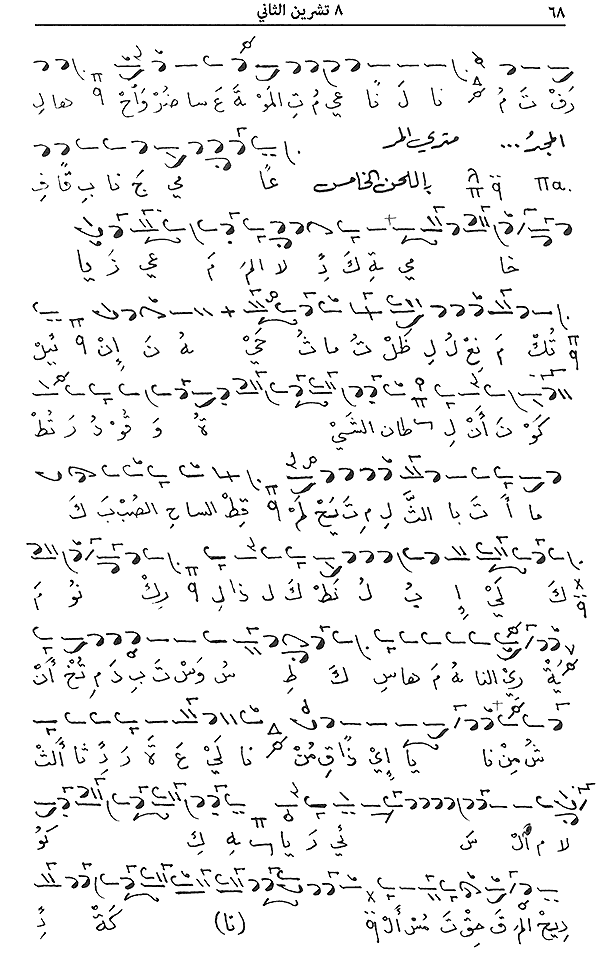 ٦٨ ٨ تشرين الثاني
رَفْ تَ مُ نا لَ نًا عي مُ تِ المَوْ ةَ عَ سا ضُرْ وَاحْ ها لِ
المجدُ... متري المر
πa. باللحن الخامس غًا مي جَ نا بِ قًا فِ
خا مي ةِ كَ دِ لا المَ رَ مَ عي زَ يا
تُكَّ مَ نِعْ لُ لِ ظَلْ تُ ما ثُ حَيْ هُ نَ إِنْ ئيلْ
كَوْ نَ أَنْ لِ طان الشَيْ ةُ وَ قُوْ دُ رَ تُطْ
ما أَ تَ با الثَّ لِ مِ تَ يَحْ لَمْ قِطْ الساحِ الصُبْ بَ كَ
كَ لَيْ إِ بُ لُ نَطْ كَ لِ ذا لِ رِكْ نَوُ مَ
يَةْ ريْ النا هُ مَ هاسِ كَ ظِ سُ وَسْ تَ بِ دَ مِ تُخْ أَنْ
شُ مِنْ نا يا إيْ ذًا قِ مُنْ نا لَيْ عَ ةَ رَ دِّ ثا أَلْثْ
لا م أَلْ سَ ئي رَ يا سِ هِ كِ كَوُ
ديحْ المَ قَ حِقْ تَ مُسْ أَلْ (نا) كَةْ دِّ